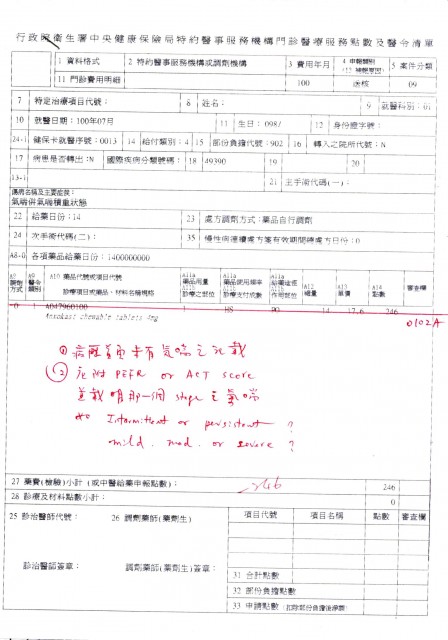 行政院衛生署中央健康保險局特約醫事服務機構門診醫療服務點數及醫令清單
1 資料格式 2 特約醫事服務機構或調劑機構 3 費用年月 4 申報類別 5 案件分類
11 門診費用明細 100 送核 09
7 特定治療項目代號： 8 姓名： 9 就醫科別：01
10 就醫日期：100年07月 11 生日： 098/ 12 身份證字號：
24-1 健保卡就醫序號：0013 14 給付類別：4 15 部份負擔代號：902 16 轉入之院所代號：N
17 病患是否轉出：N 國際疾病分類號碼：18 49390 19 20
13-1 21 主手術代碼(一)：
傷病名稱及主要症狀：
氣喘併氣喘積重狀態
22 給藥日份：14 23 處方調劑方式：藥品自行調劑
24 次手術代碼(二)： 35 慢性病連續處方箋有效期間總處方日份：0
A8-0 各項藥品給藥日份：1400000000
調劑方式 醫令類別 A10 藥品代號或項目代號 診療項目或藥品、材料名稱規格 藥品用量 診療之部位 藥品使用頻率 診療支付成數 給藥途徑 作用部位 A12 總量 A13 單價 A14 點數 審查欄
0 1 A047960100 1 HS PO 14 17.6 246
Ansukast chewable tablets 4mg
0102A
① 病歷首頁未有氣喘之記載
② 應附 PEFR or ACT score
並載明那一個 stage 之氣喘
Intermittent or persistent ?
mild, mod. or severe ?
246
27 藥費(檢驗)小計 (或中醫給藥申報點數)： 246
28 診療及材料點數小計： 0
25 診治醫師代號： 26 調劑藥師(藥劑生) 項目代號 項目名稱 點數 審查欄
診治醫師簽章： 調劑藥師(藥劑生)簽章：
31 合計點數
32 部份負擔點數
33 申請點數 (扣除部分負擔後淨額)